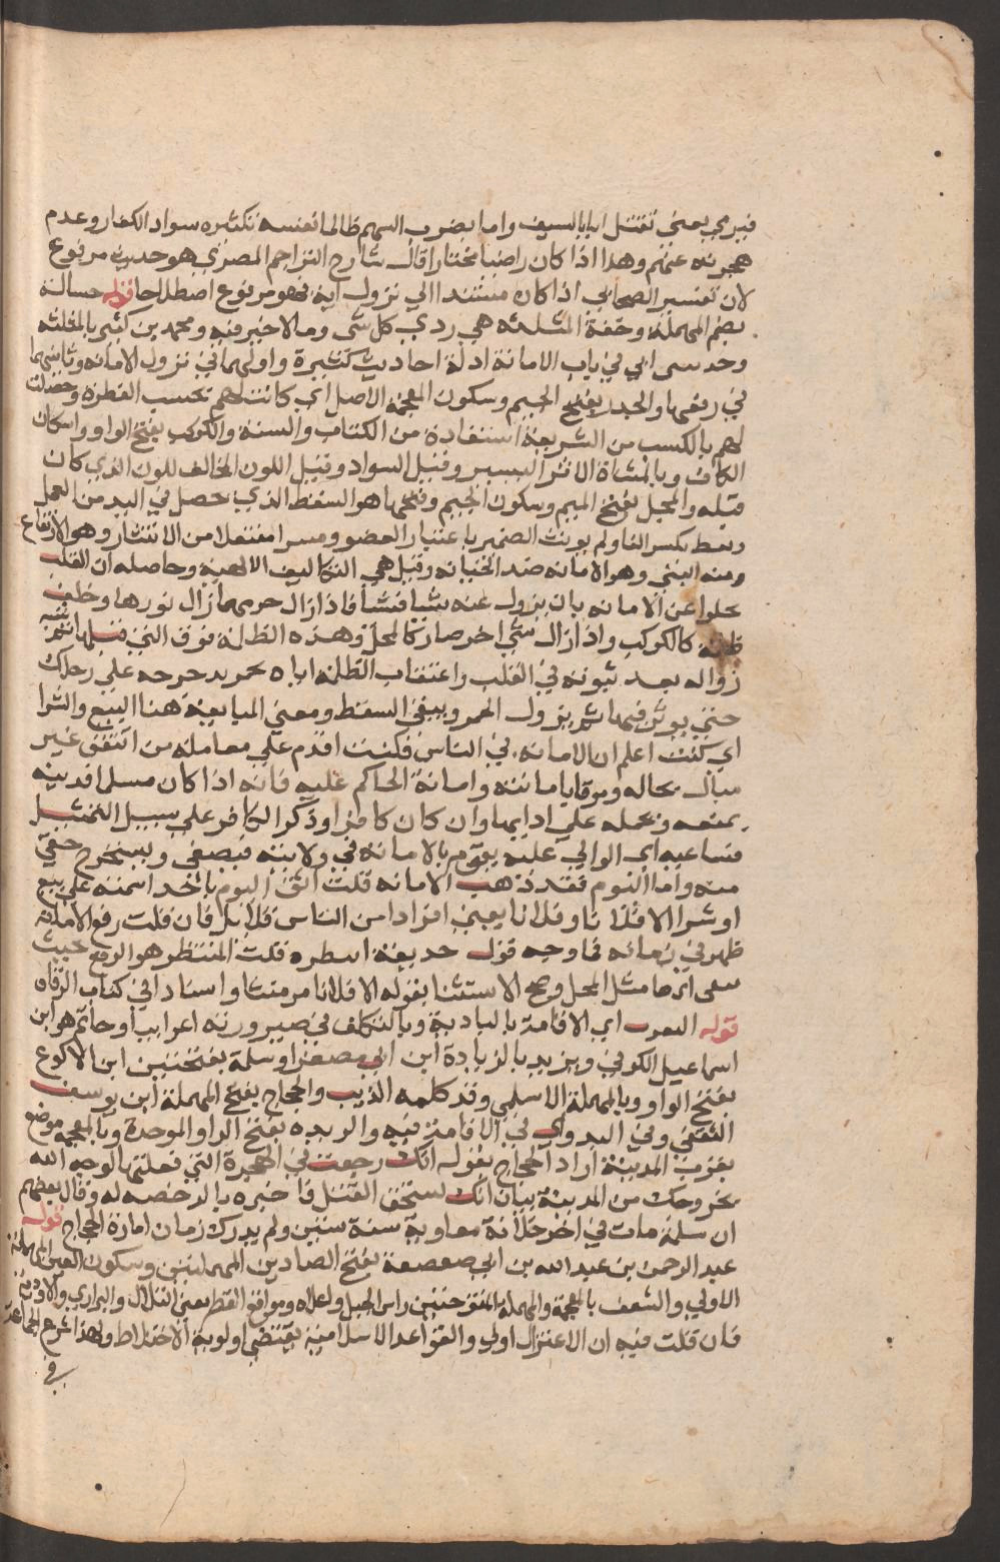 فيرمي يعني تقتل اما بالسيف واما بضرب السهم ظالما نفسه بتكثيره سواد الكفار وعدم
هجرته عنهم وهذا اذا كان راضيا مختارا قال شارح التراجم المصري هو حديث مرفوع
لان تفسير الصحابي اذا كان مستندا الي نزول اية فهو مرفوع اصطلاحا قوله حسالة
بضم المهملة وخفة المثلثة هي ردي كل شي وما لا خير فيه ومحمد بن كثير بالمثلثة
وحدسى اي في باب الامانة اد له احاديث كثيرة واولهما في نزول الامانه وثانيهما
في رفعها والجدر بفتح الجيم وسكون المعجمة الاصل اي كانت لهم بحسب الفطرة وحصلت
لهم بالكسب من الشريعة استفادة من الكتاب والسنة والوكت بفتح الواو واسكان
الكاف وبالمثناة الاثر اليسير وقيل السواد وقيل اللون المخالف للون الذي كان
قبله والمجل بفتح الميم وسكون الجيم وفتحها هو السفط الذي يحصل في اليد من العمل
ونفط بكسر الفا ولم يونث الضمير باعتبار العضو ومسرا مفتعلا من الانتشار وهو الارتفاع
ومنه المنبر وهو الامانه ضد الخيانه وقيل هي التكاليف الالهية وحاصله ان القلب
يخلوا عن الامانه بان يزول عنه شيا فشيأ فاذا زال جزء منها زال نورها وخلف
ظلمة كالوكت واذا زال شي اخر صار كالمجل وهذه الظلمة فوق التي قبلها ثم شبه
زواله بعد ثبوته في القلب واعتقاب الظلمة اياه بجمر يدحرجه علي رجلك
حتي يوثر فيها ثم يزول الجمر ويبقي السفط ومعني المبايعة هنا البيع والشرا
اي كنت اعلم ان الامانه في الناس فكنت اقدم علي معاملة من اتفق غير
مبال بحاله وثوقا بامانته وامانة الحاكم عليه فانه اذا كان مسلما فدينه
يمنعه ويحمله علي ادايها وان كان كافرا وذكر الكافر علي سبيل التمثيل
فساعيه اي الوالي عليه يقوم بالامانه في ولايته فينصفي ويستخرج حقي
منه واما اليوم فقد ذهب الامانه قلت اثق اليوم باحد اتمنه علي بيع
او شرا الا فلانا وفلانا يعني افرادا من الناس قلائل فان قلت رفع الامانة
ظهر في زمانه فما وجه قول حديفة انتظره قلت المنتظر هو الرفع بحيث
يبقي اثرها مثل المجل وصح الاستثنا بقوله الا فلانا مر متنا واسنادا في كتاب الرقاق
قوله التعرب اي الاقامة بالبادية وبالتكلف في صيرورته اعرابيا وحاتم هو ابن
اسماعيل الكوفي ويزيد بالزيادة ابن ابي مصغرا وسلمة بفتحتين ابن الاكوع
بفتح الواو وبالمهملة الاسلمي وقد كلمه الذيب والحجاج بفتح المهملة ابن يوسف
الثقفي وفي البدو اي في الاقامة فيه والربذه بفتح الرا والموحدة وبالمعجمة موضع
بقرب المدينة اراد الحجاج بقوله انك رجعت في الهجرة التي فعلتها لوجه الله
بخروجك من المدينة بيان انك تستحق القتل فاخبره بالرخصه له وقال بعضهم
ان سلمة مات في اخر خلافة معاوية سنة ستين ولم يدرك زمان امارة الحجاج قوله
عبد الرحمن بن عبد الله بن ابي صعصعة بفتح الصادين المهملتين وسكون العين المهملة
الاولي والشعف بالمعجمة والمهملة المفتوحتين راس الجبل واعلاه ومواقع القطر يعني التلال والبراري والاودية
فان قلت فيه ان الاعتزال اولي والقواعد الاسلامية يقتضي اولوية الاختلاط ولهذا شرع الجماعة
في